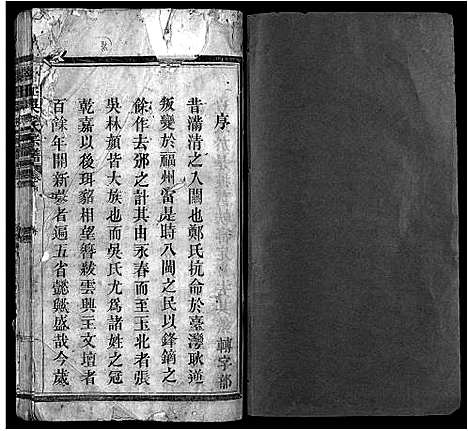 序
昔滿清之入關也鄭氏抗命於臺灣耿逆
叛變於福州當是時八閩之民以鋒鏑之
餘作去鄉之計其由永春而至玉北者張
吳林顏皆大族也而吳氏尤為諸姓之冠
乾嘉以後珥貂相望善嗀雲興主文壇者
百餘年開新墓者遍五省懿歟盛哉今歲
轉字部